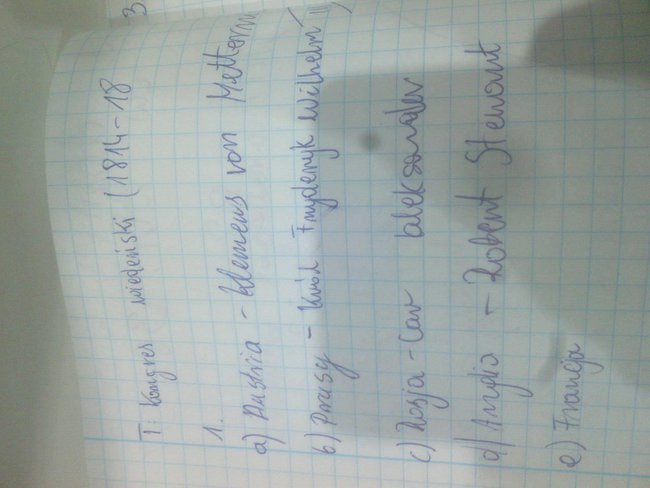 3
T: Kongres wiedeński (1814-18
1.
a) Austria - Klemens von Mettern
b) Prusy - Król Fryderyk Wilhelm III
c) Rosja - Car aleksander
d) Anglia - Robert Stewart
e) Francja